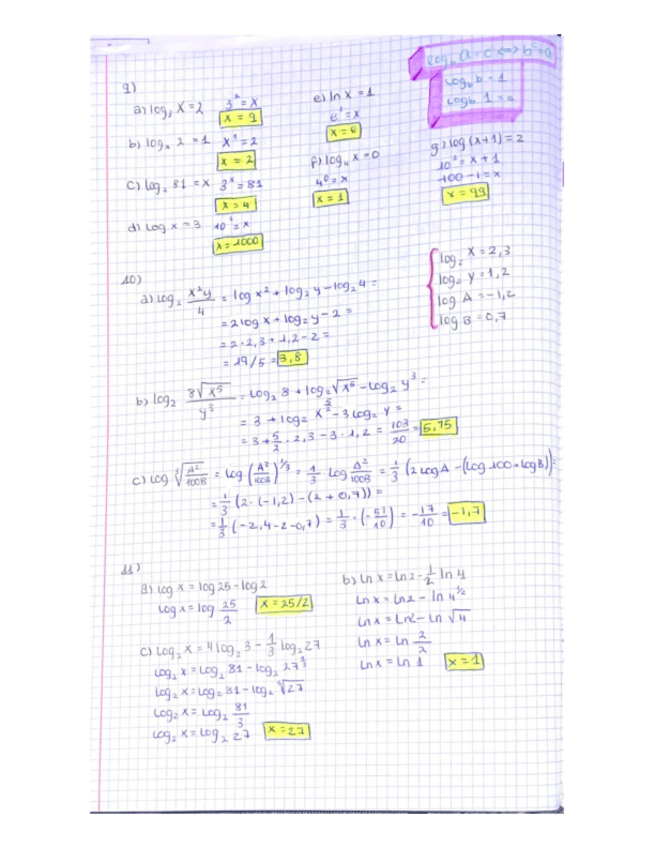 log_b a = c <=> b^c = a
log_b b = 1
log_b 1 = 0
9)
a) log₃ x = 2 3² = x
x = 9
b) logₓ 2 = 1 x¹ = 2
x = 2
c) log₃ 81 = x 3ˣ = 81
x = 4
d) log x = 3 10³ = x
x = 1000
e) ln x = 1
e¹ = x
x = e
f) log₄ x = 0
4⁰ = x
x = 1
g) log (x+1) = 2
10² = x + 1
100 - 1 = x
x = 99
10)
log₂ x = 2,3
log₂ y = 1,2
log A = -1,2
log B = 0,7
a) log₂ x²y/4 = log x² + log₂ y - log₂ 4 =
= 2 log x + log₂ y - 2 =
= 2·2,3 + 1,2 - 2 =
= 19/5 = 3,8
b) log₂ 8√x⁵/y³ = log₂ 8 + log₂ √x⁵ - log₂ y³ =
= 3 + log₂ x^(5/2) - 3 log₂ y =
= 3 + 5/2 · 2,3 - 3·1,2 = 103/20 = 5,75
c) log ³√(A²/100B) = log (A²/100B)^(1/3) = 1/3 log A²/100B = 1/3 (2 log A - (log 100 + log B)) =
= 1/3 (2·(-1,2) - (2 + 0,7)) =
= 1/3 (-2,4 - 2 - 0,7) = 1/3 · (-51/10) = -17/10 = -1,7
11)
a) log x = log 25 - log 2
log x = log 25/2 x = 25/2
b) ln x = ln 2 - 1/2 ln 4
ln x = ln 2 - ln 4^(1/2)
ln x = ln 2 - ln √4
ln x = ln 2/2
ln x = ln 1 x = 1
c) log₂ x = 4 log₂ 3 - 1/3 log₂ 27
log₂ x = log₂ 81 - log₂ 27^(1/3)
log₂ x = log₂ 81 - log₂ ³√27
log₂ x = log₂ 81/3
log₂ x = log₂ 27 x = 27